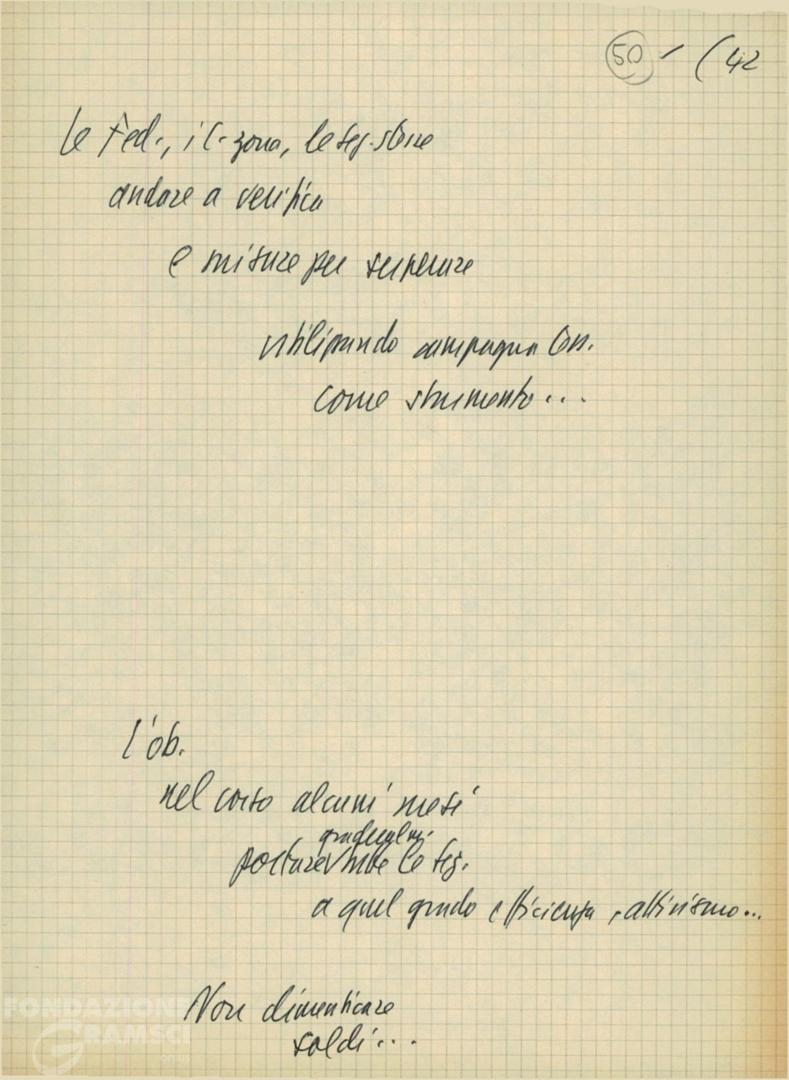 50 - (42
Le Fed., i C. zona, le seg. stesse
andare a verifica
e misure per superare
utilizzando campagna Con.
come strumento...
l'ob.
nel corso alcuni mesi
gradualm.
portare tutte le seg.
a quel grado efficienza, attivismo...
Non dimenticare
soldi...
FONDAZIONE
GRAMSCI